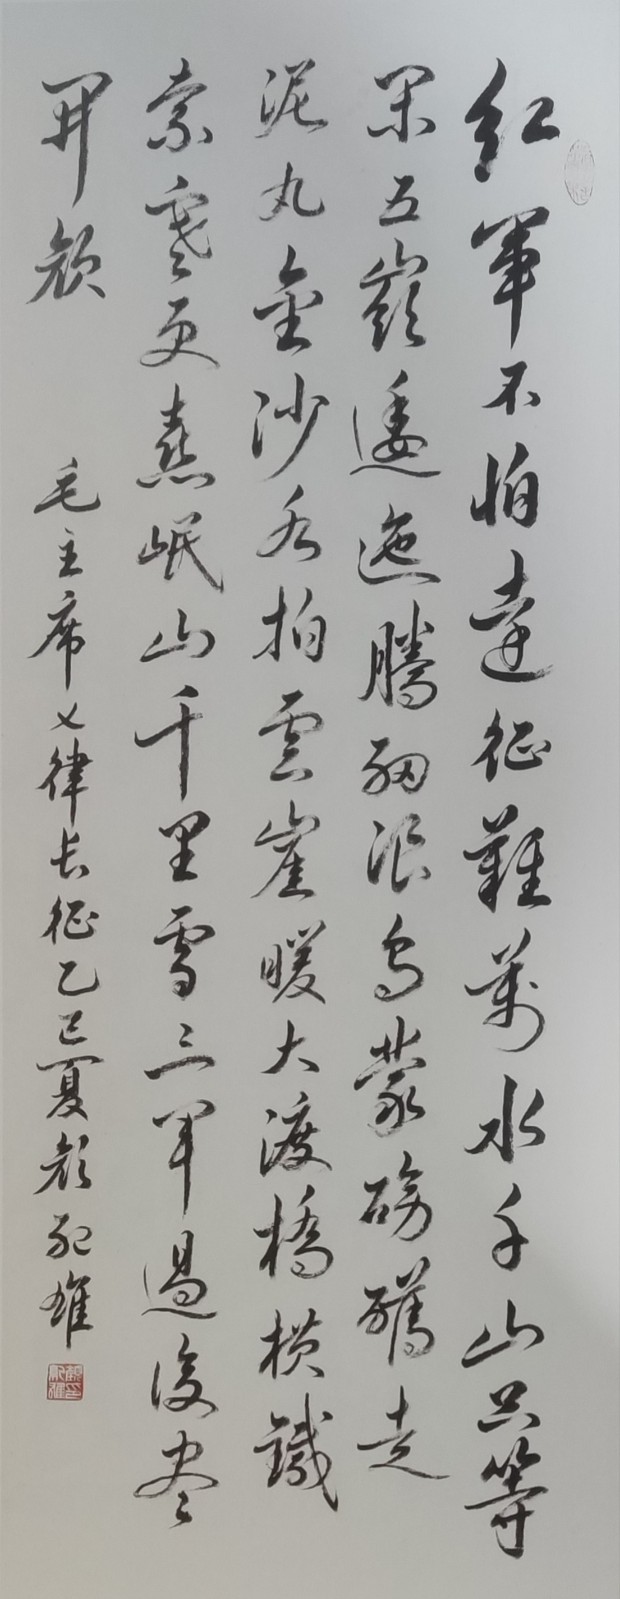 紅軍不怕遠征難萬水千山只等
閑五嶺逶迤騰細浪烏蒙磅礴走
泥丸金沙水拍雲崖暖大渡橋橫鐵
索寒更喜岷山千里雪三軍過後盡
開顏
毛主席七律长征乙巳夏顏